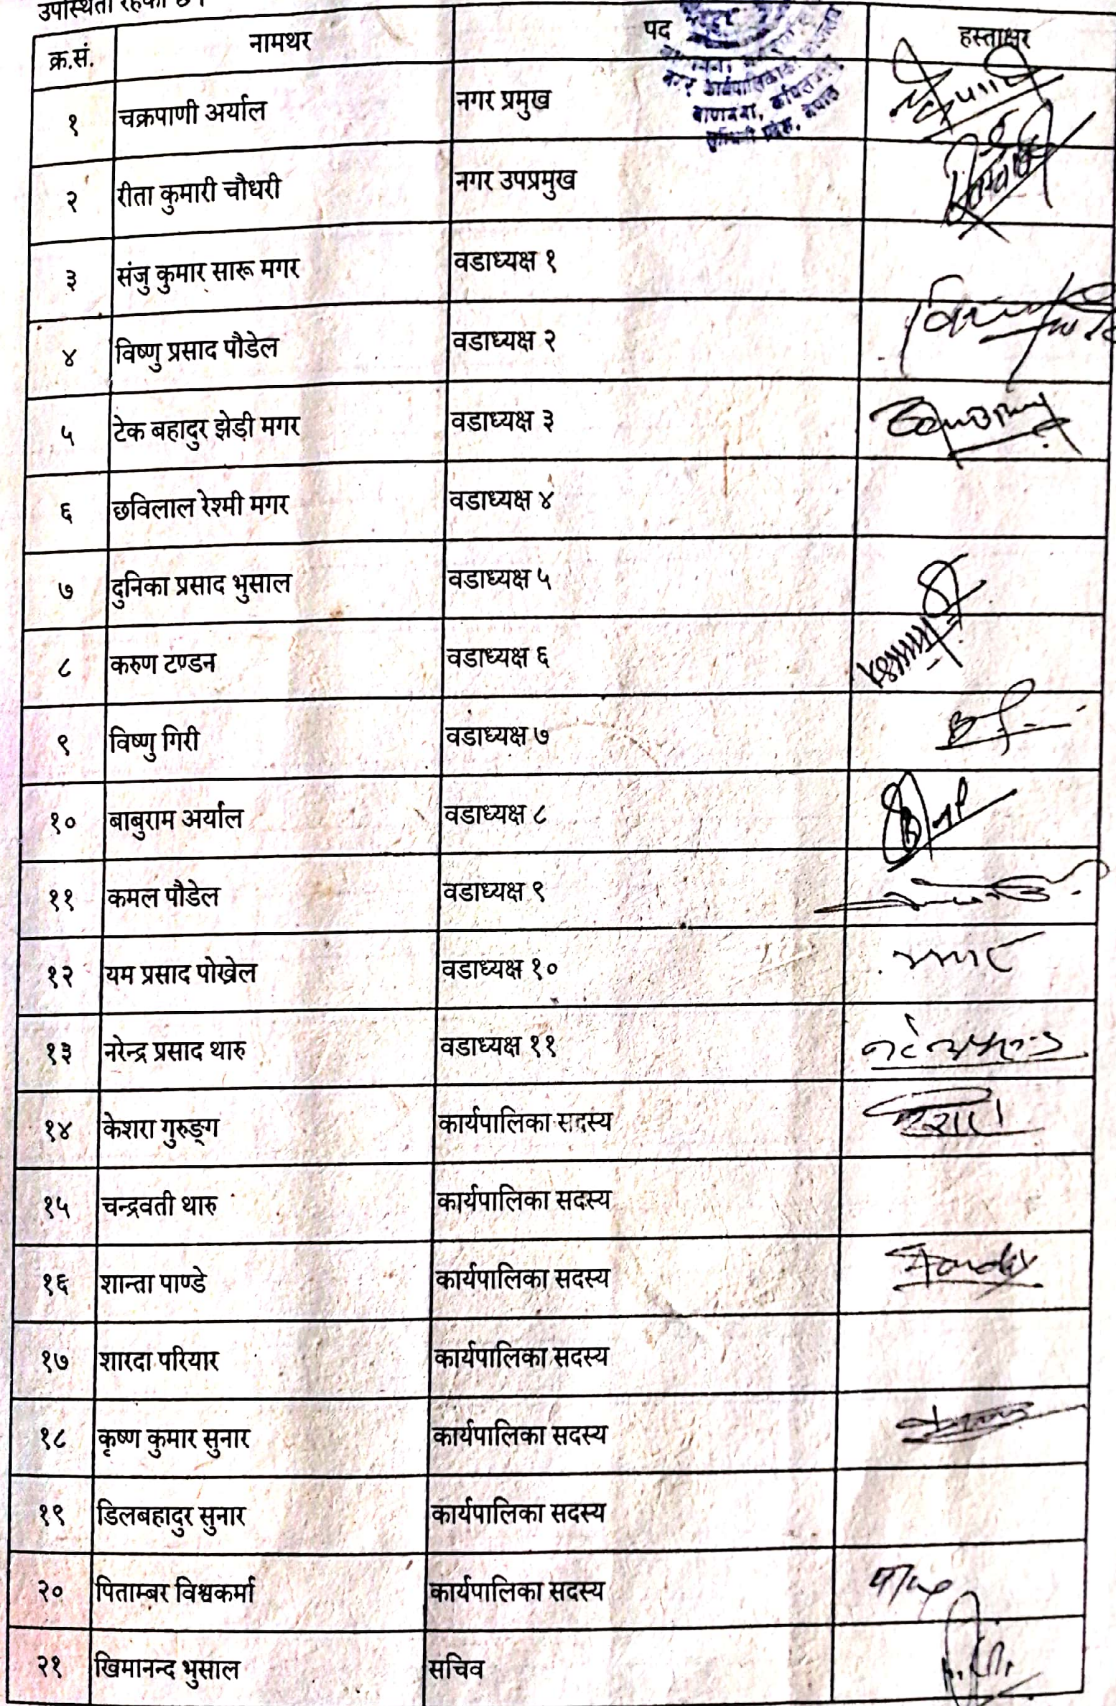 उपस्थिती रहेको छ।
क्र.सं. नामथर पद हस्ताक्षर
१ चक्रपाणी अर्याल नगर प्रमुख
२ रीता कुमारी चौधरी नगर उपप्रमुख
३ संजु कुमार सारू मगर वडाध्यक्ष १
४ विष्णु प्रसाद पौडेल वडाध्यक्ष २
५ टेक बहादुर झेडी मगर वडाध्यक्ष ३
६ छविलाल रेश्मी मगर वडाध्यक्ष ४
७ दुनिका प्रसाद भुसाल वडाध्यक्ष ५
८ करुण टण्डन वडाध्यक्ष ६
९ विष्णु गिरी वडाध्यक्ष ७
१० बाबुराम अर्याल वडाध्यक्ष ८
११ कमल पौडेल वडाध्यक्ष ९
१२ यम प्रसाद पोख्रेल वडाध्यक्ष १०
१३ नरेन्द्र प्रसाद थारु वडाध्यक्ष ११
१४ केशरा गुरुङ्ग कार्यपालिका सदस्य
१५ चन्द्रवती थारु कार्यपालिका सदस्य
१६ शान्ता पाण्डे कार्यपालिका सदस्य
१७ शारदा परियार कार्यपालिका सदस्य
१८ कृष्ण कुमार सुनार कार्यपालिका सदस्य
१९ डिलबहादुर सुनार कार्यपालिका सदस्य
२० पिताम्बर विश्वकर्मा कार्यपालिका सदस्य
२१ खिमानन्द भुसाल सचिव